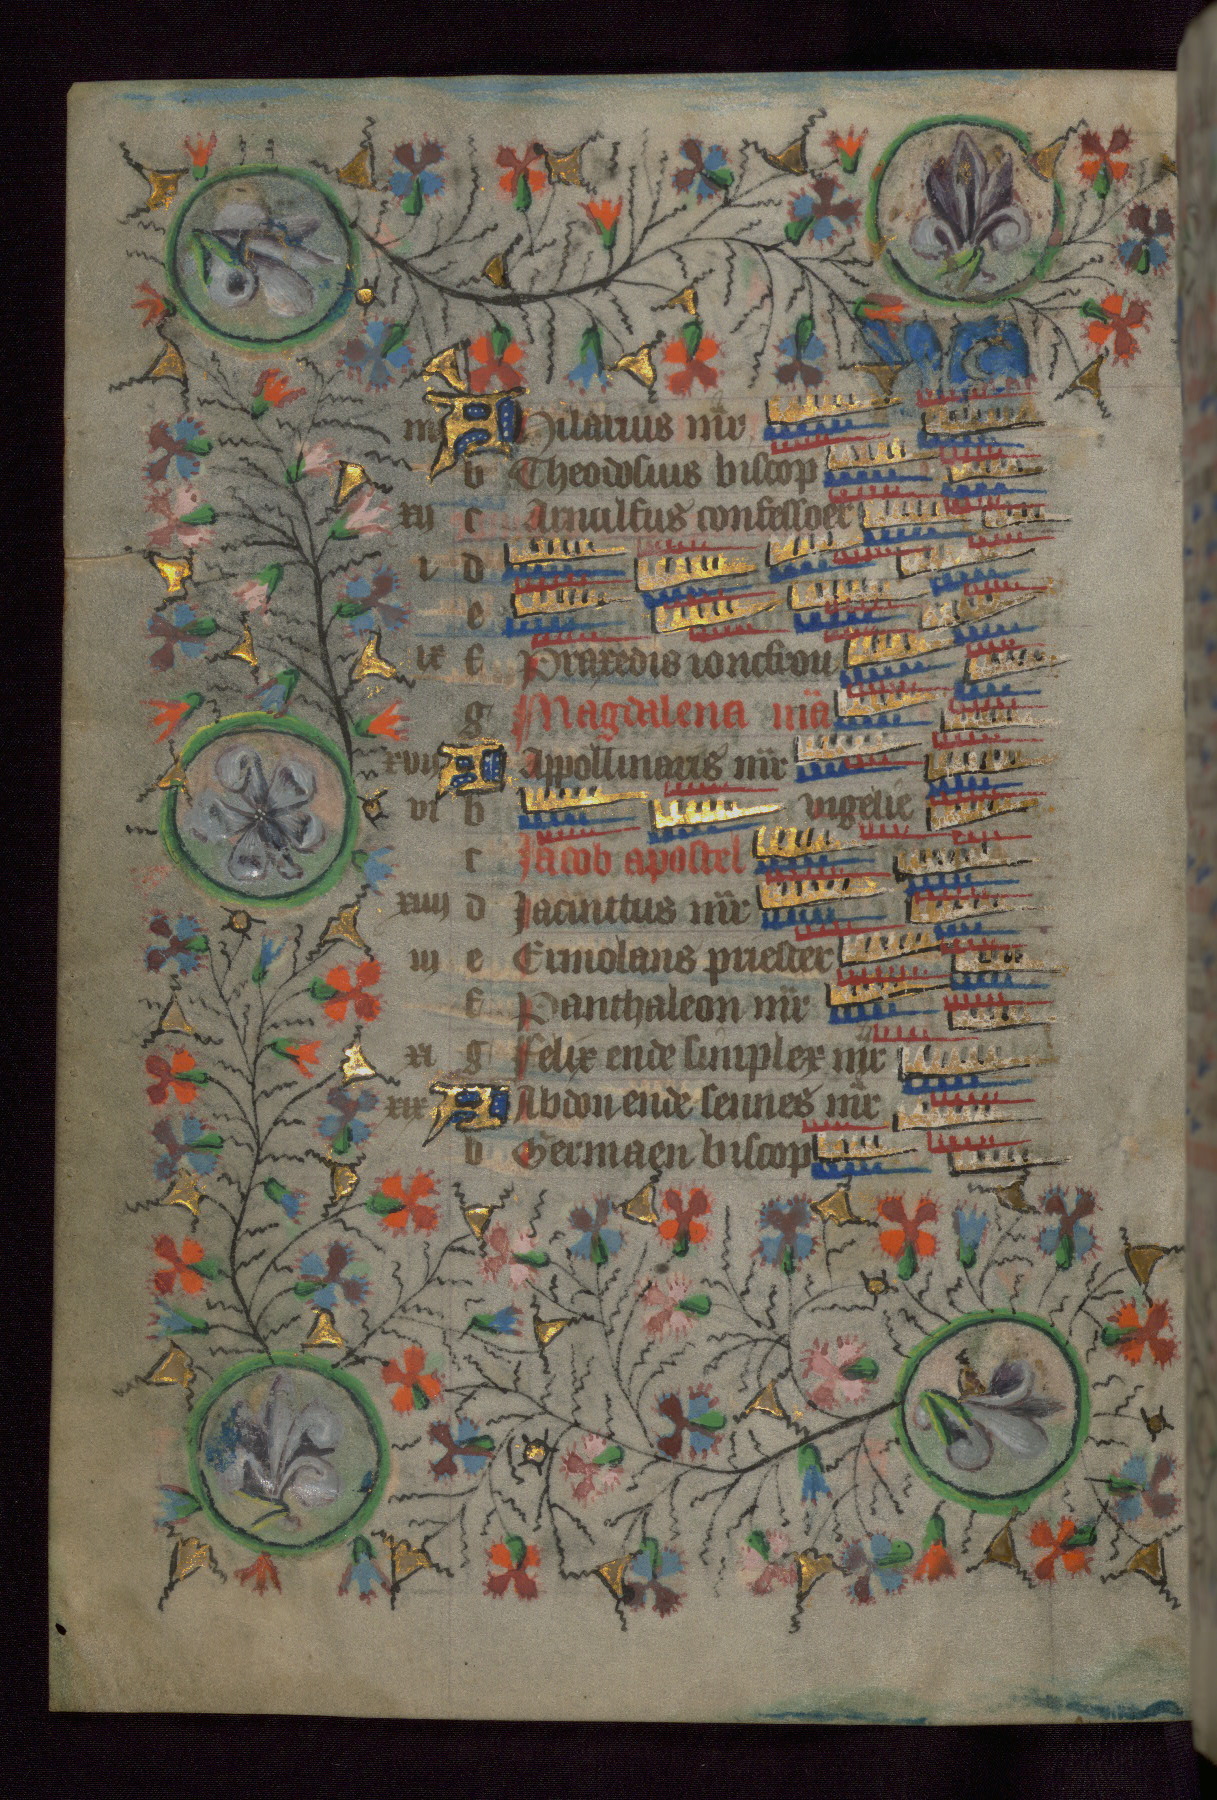 iiij A Hilarius mr̄
b Theodosius biscop
xij c Arnulfus confessoer
i d
e
ix f Praxedis ionckvrou
g Magdalena
xvij A Appollinaris mr̄
vi b vigelie
c Jacob apostel
xiiij d Jacinttus mr̄
iij e Ermolans priester
f Panthaleon mr̄
xi g Felix ende simplex mr̄
xix A Abdon ende sennes mr̄
b Germaen biscop